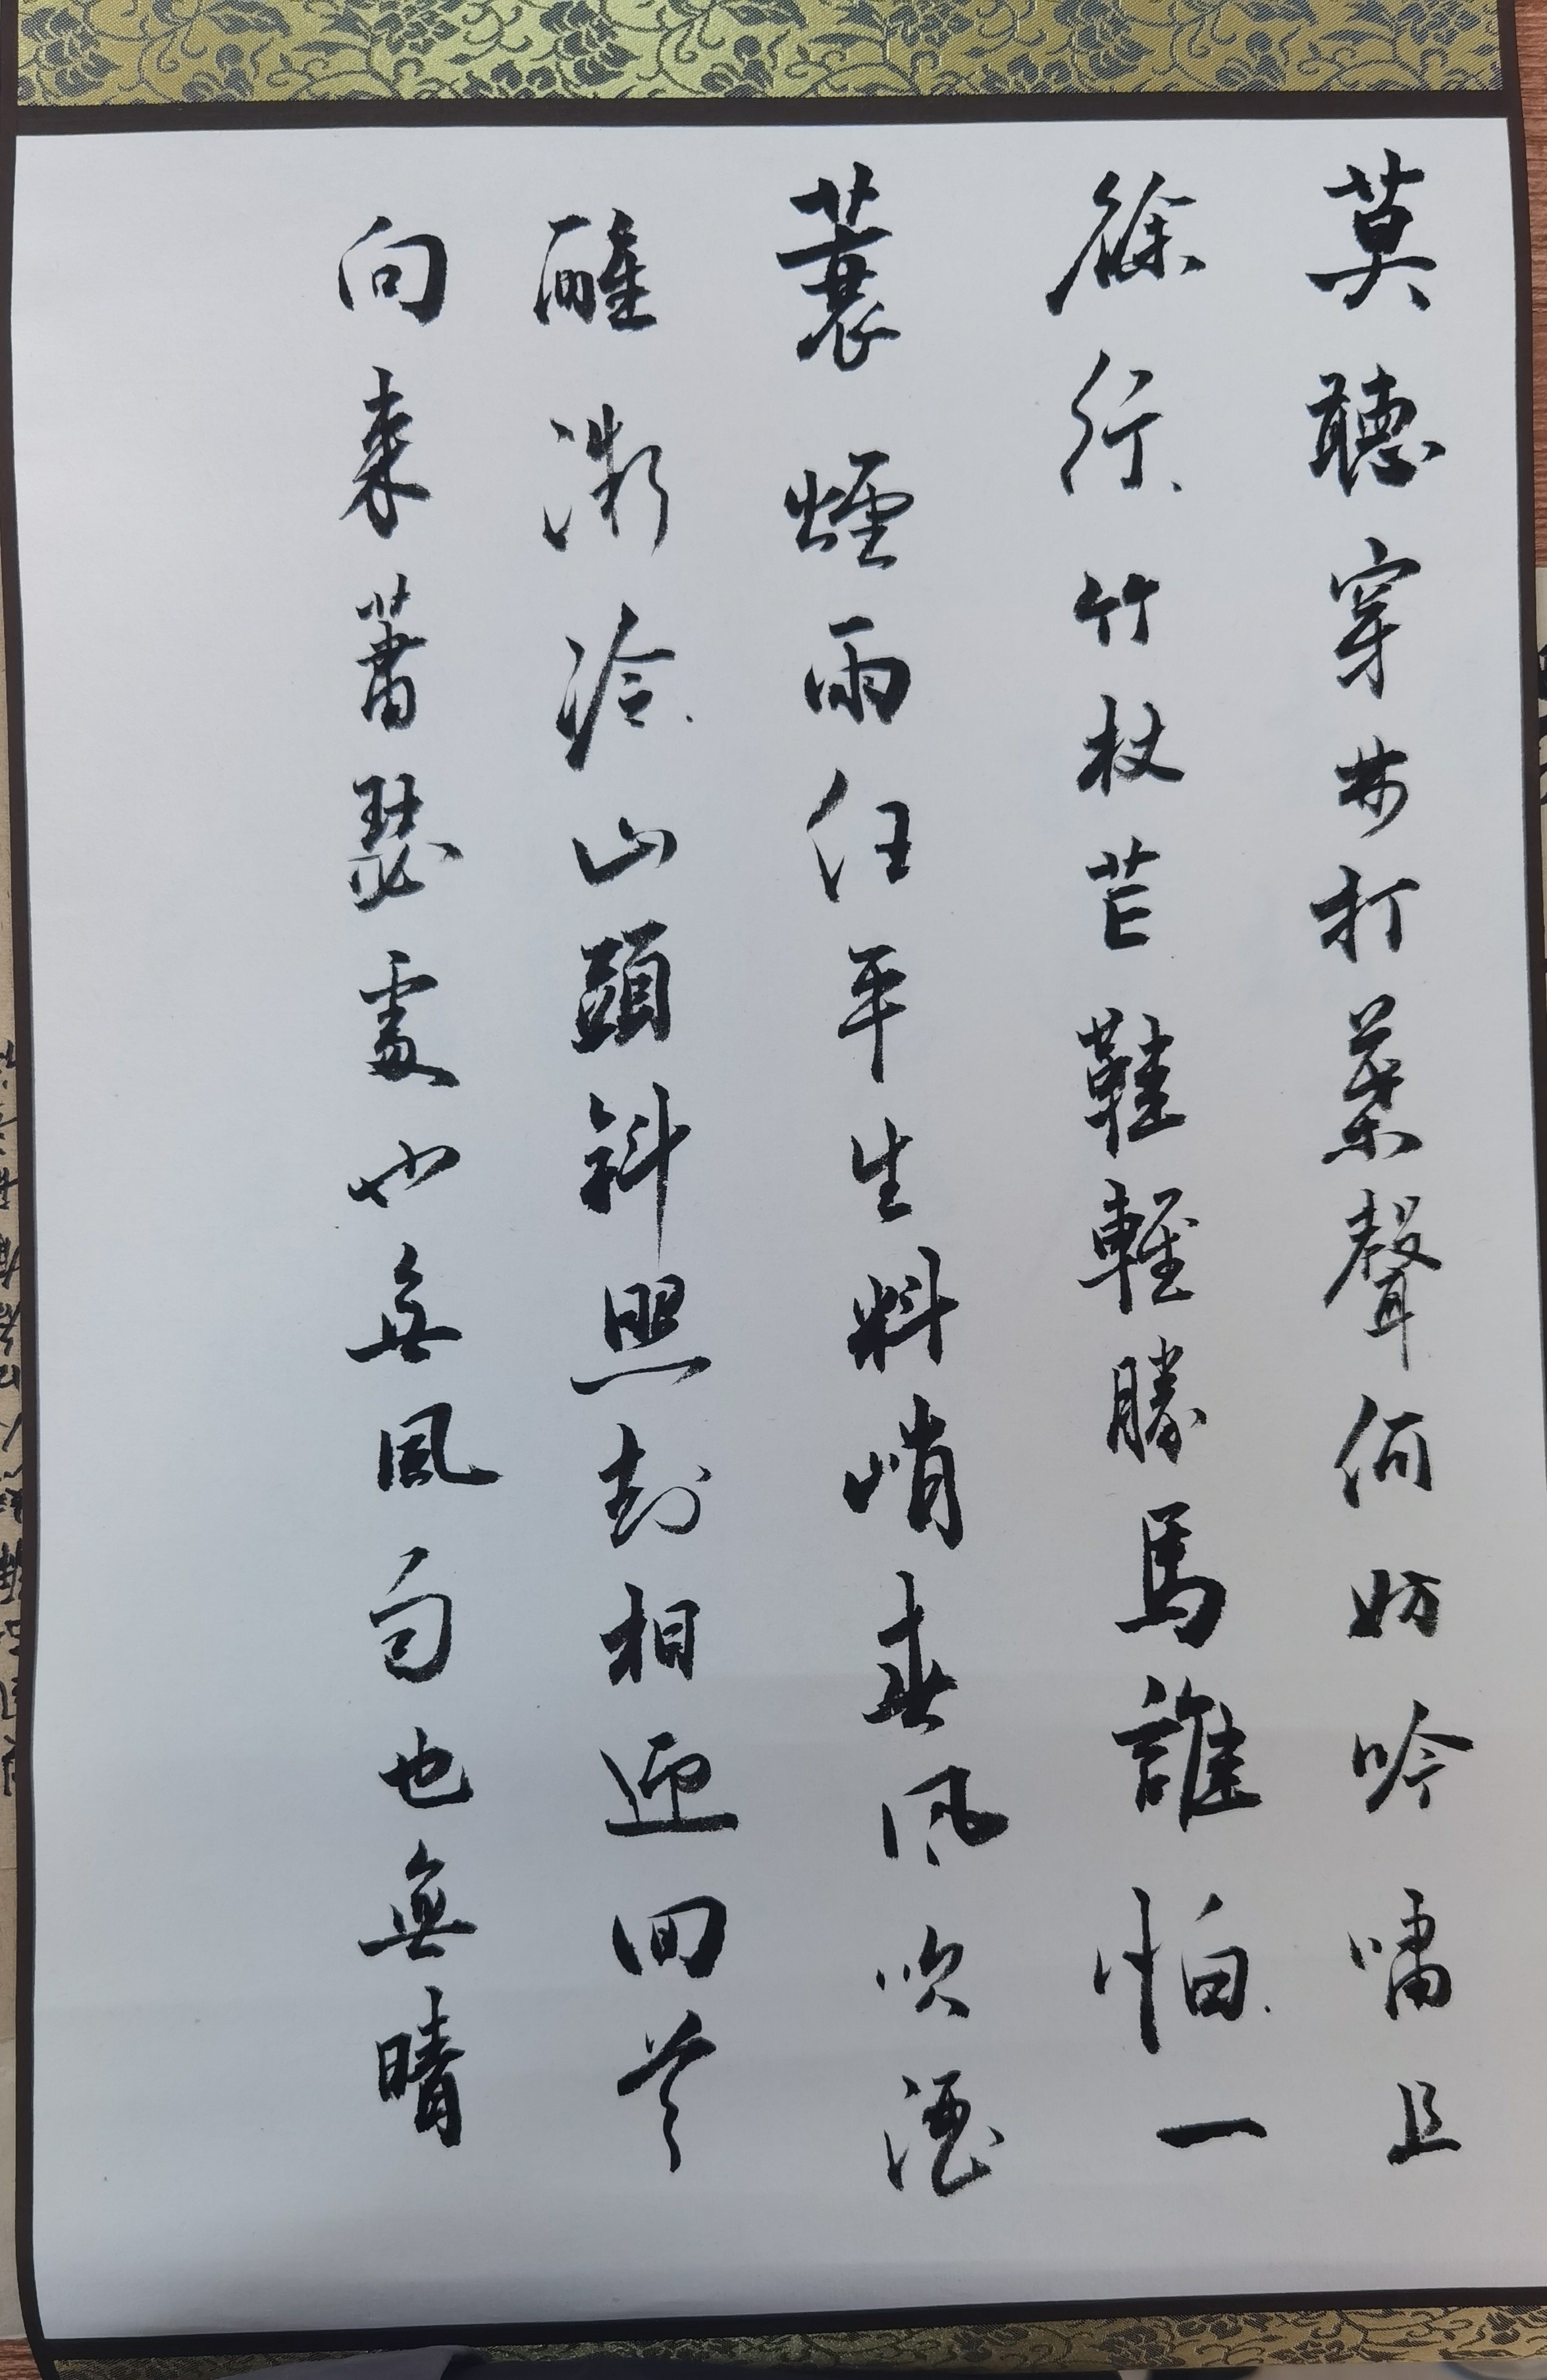 莫聽穿林打葉聲何妨吟嘯且
徐行竹杖芒鞋輕勝馬誰怕一
蓑煙雨任平生料峭春風吹酒
醒微冷山頭斜照却相迎回首
向來蕭瑟處也無風雨也無晴